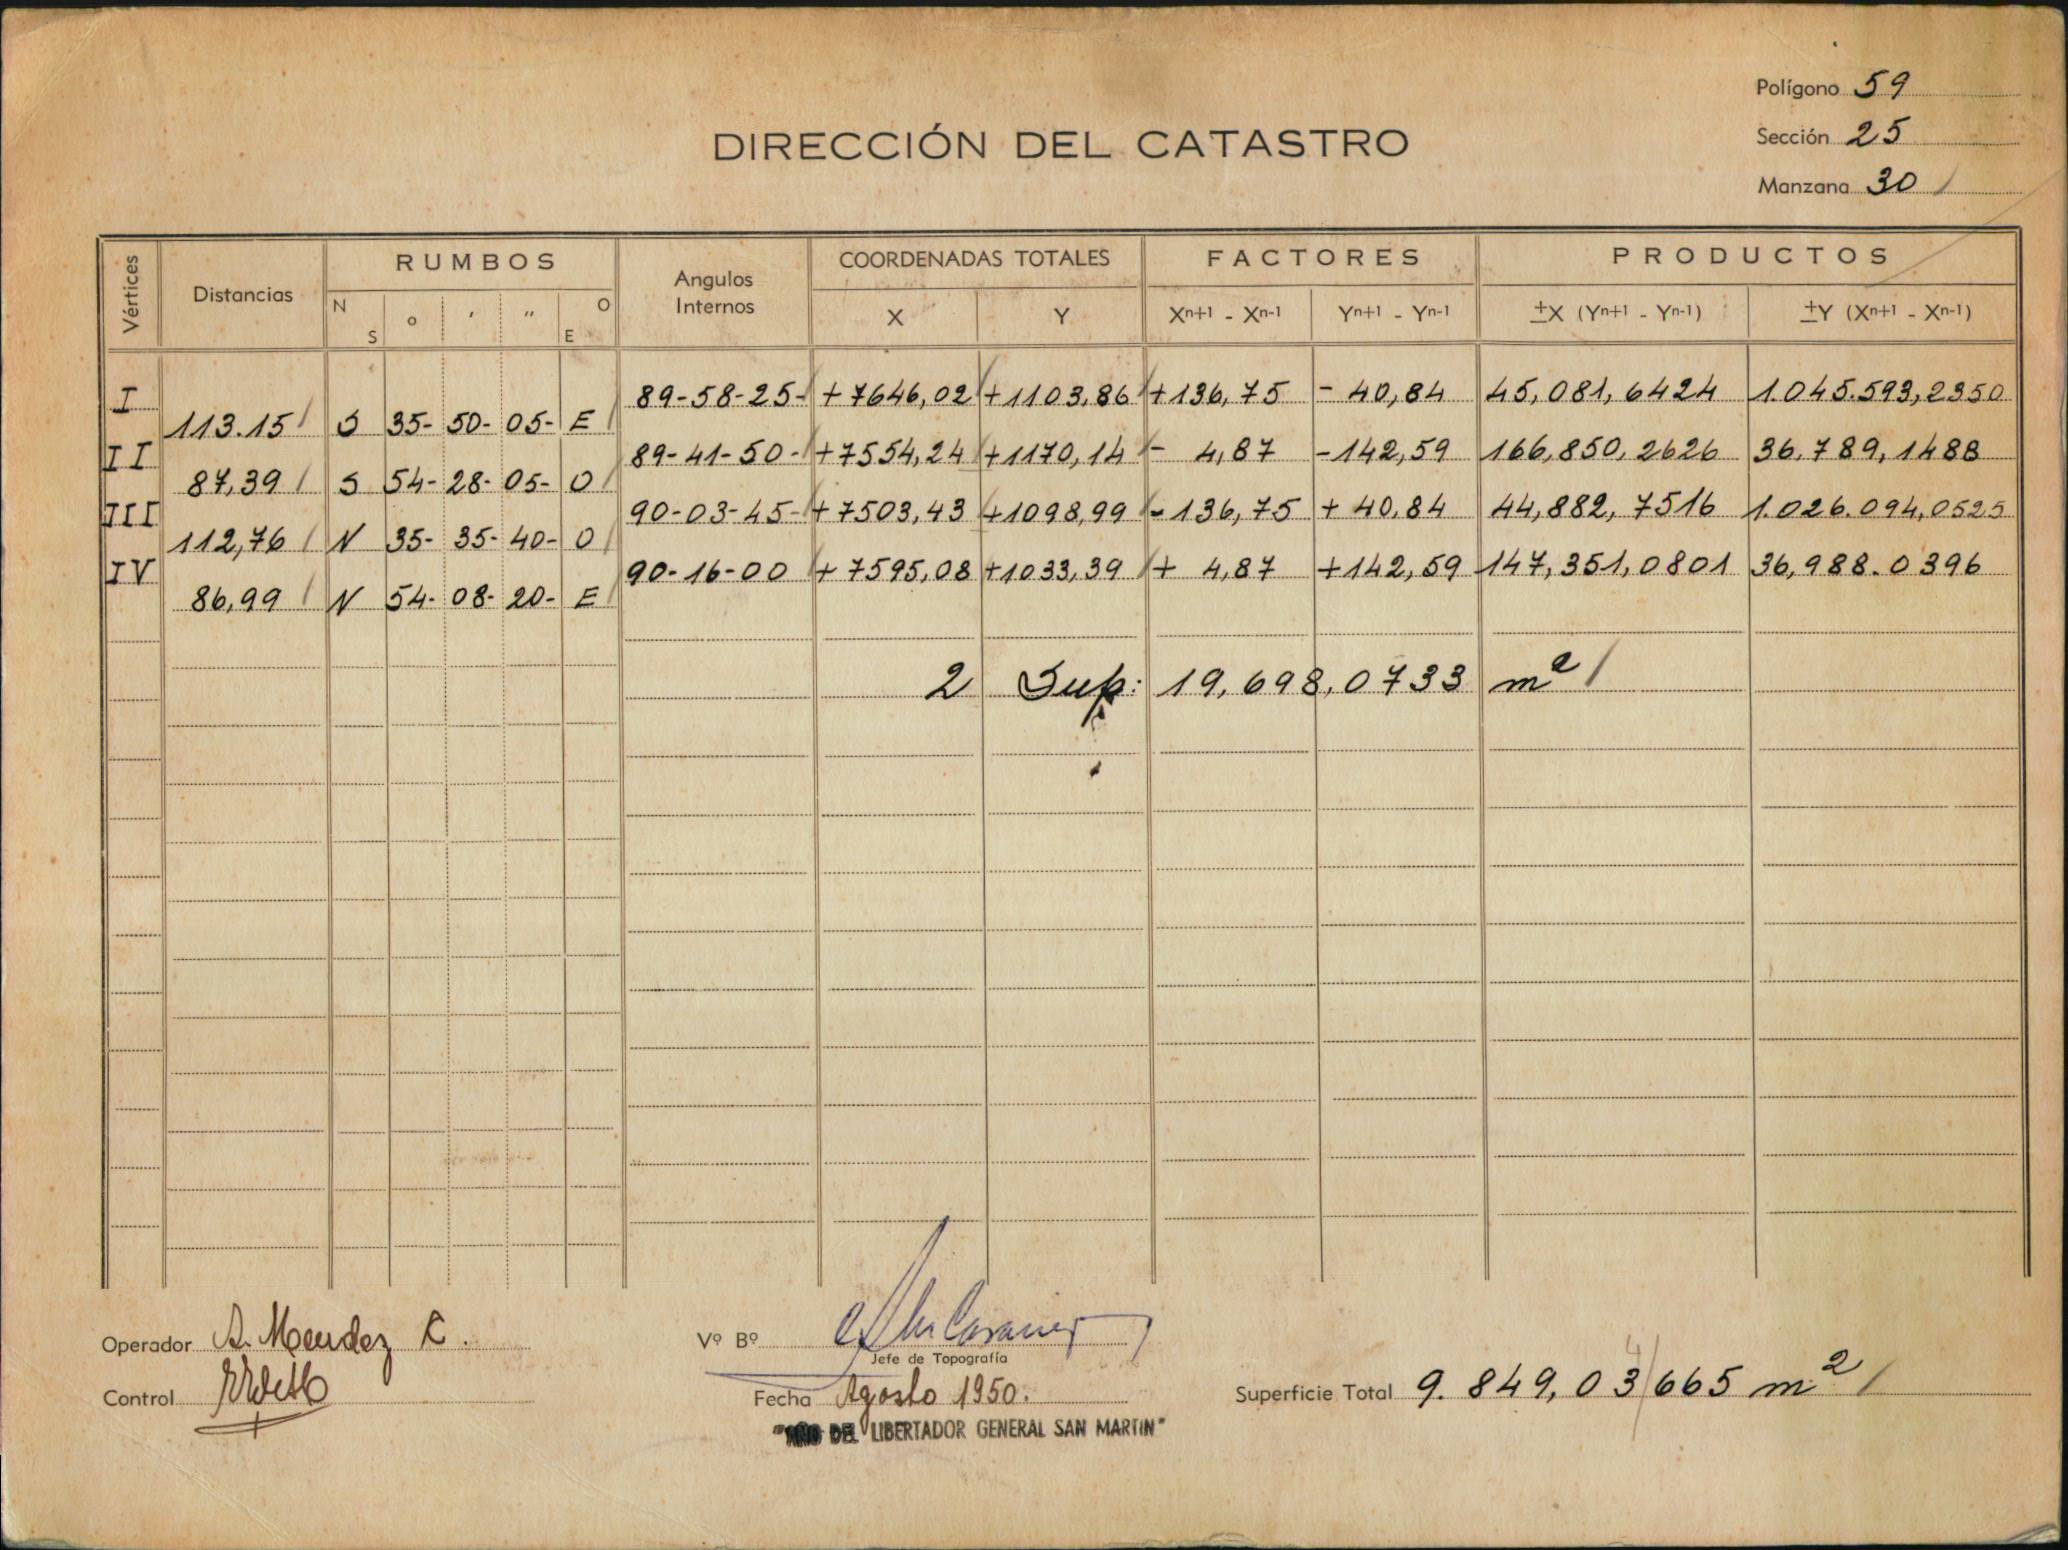 Polígono 59
DIRECCIÓN DEL CATASTRO
Sección 25
Manzana 30 /
Vértices Distancias RUMBOS Angulos Internos COORDENADAS TOTALES FACTORES PRODUCTOS
N S ° ' " O E X Y Xn+1 - Xn-1 Yn+1 - Yn-1 ±X (Yn+1 - Yn-1) ±Y (Xn+1 - Xn-1)
I 89-58-25- +7646,02 +1103,86 +136,75 - 40,84 45,081,6424 1.045.593,2350
113.15 S 35- 50- 05- E
II 89-41-50- +7554,24 +1170,14 - 4,87 -142,59 166,850,2626 36.789,1488
87,39 S 54- 28- 05- O
III 90-03-45- +7503,43 +1098,99 -136,75 + 40,84 44,882,7516 1.026.094,0525
112,76 N 35- 35- 40- O
IV 90-16-00 +7595,08 +1033,39 + 4,87 +142,59 147,351,0801 36,988.0396
86,99 N 54- 08- 20- E
2 Sup: 19,698,0733 m² /
Operador A. Mendez C.
Vº Bº
Jefe de Topografía
Control
Fecha Agosto 1950.
Superficie Total 9.849,03 4/ 665 m² /
DEL LIBERTADOR GENERAL SAN MARTIN"